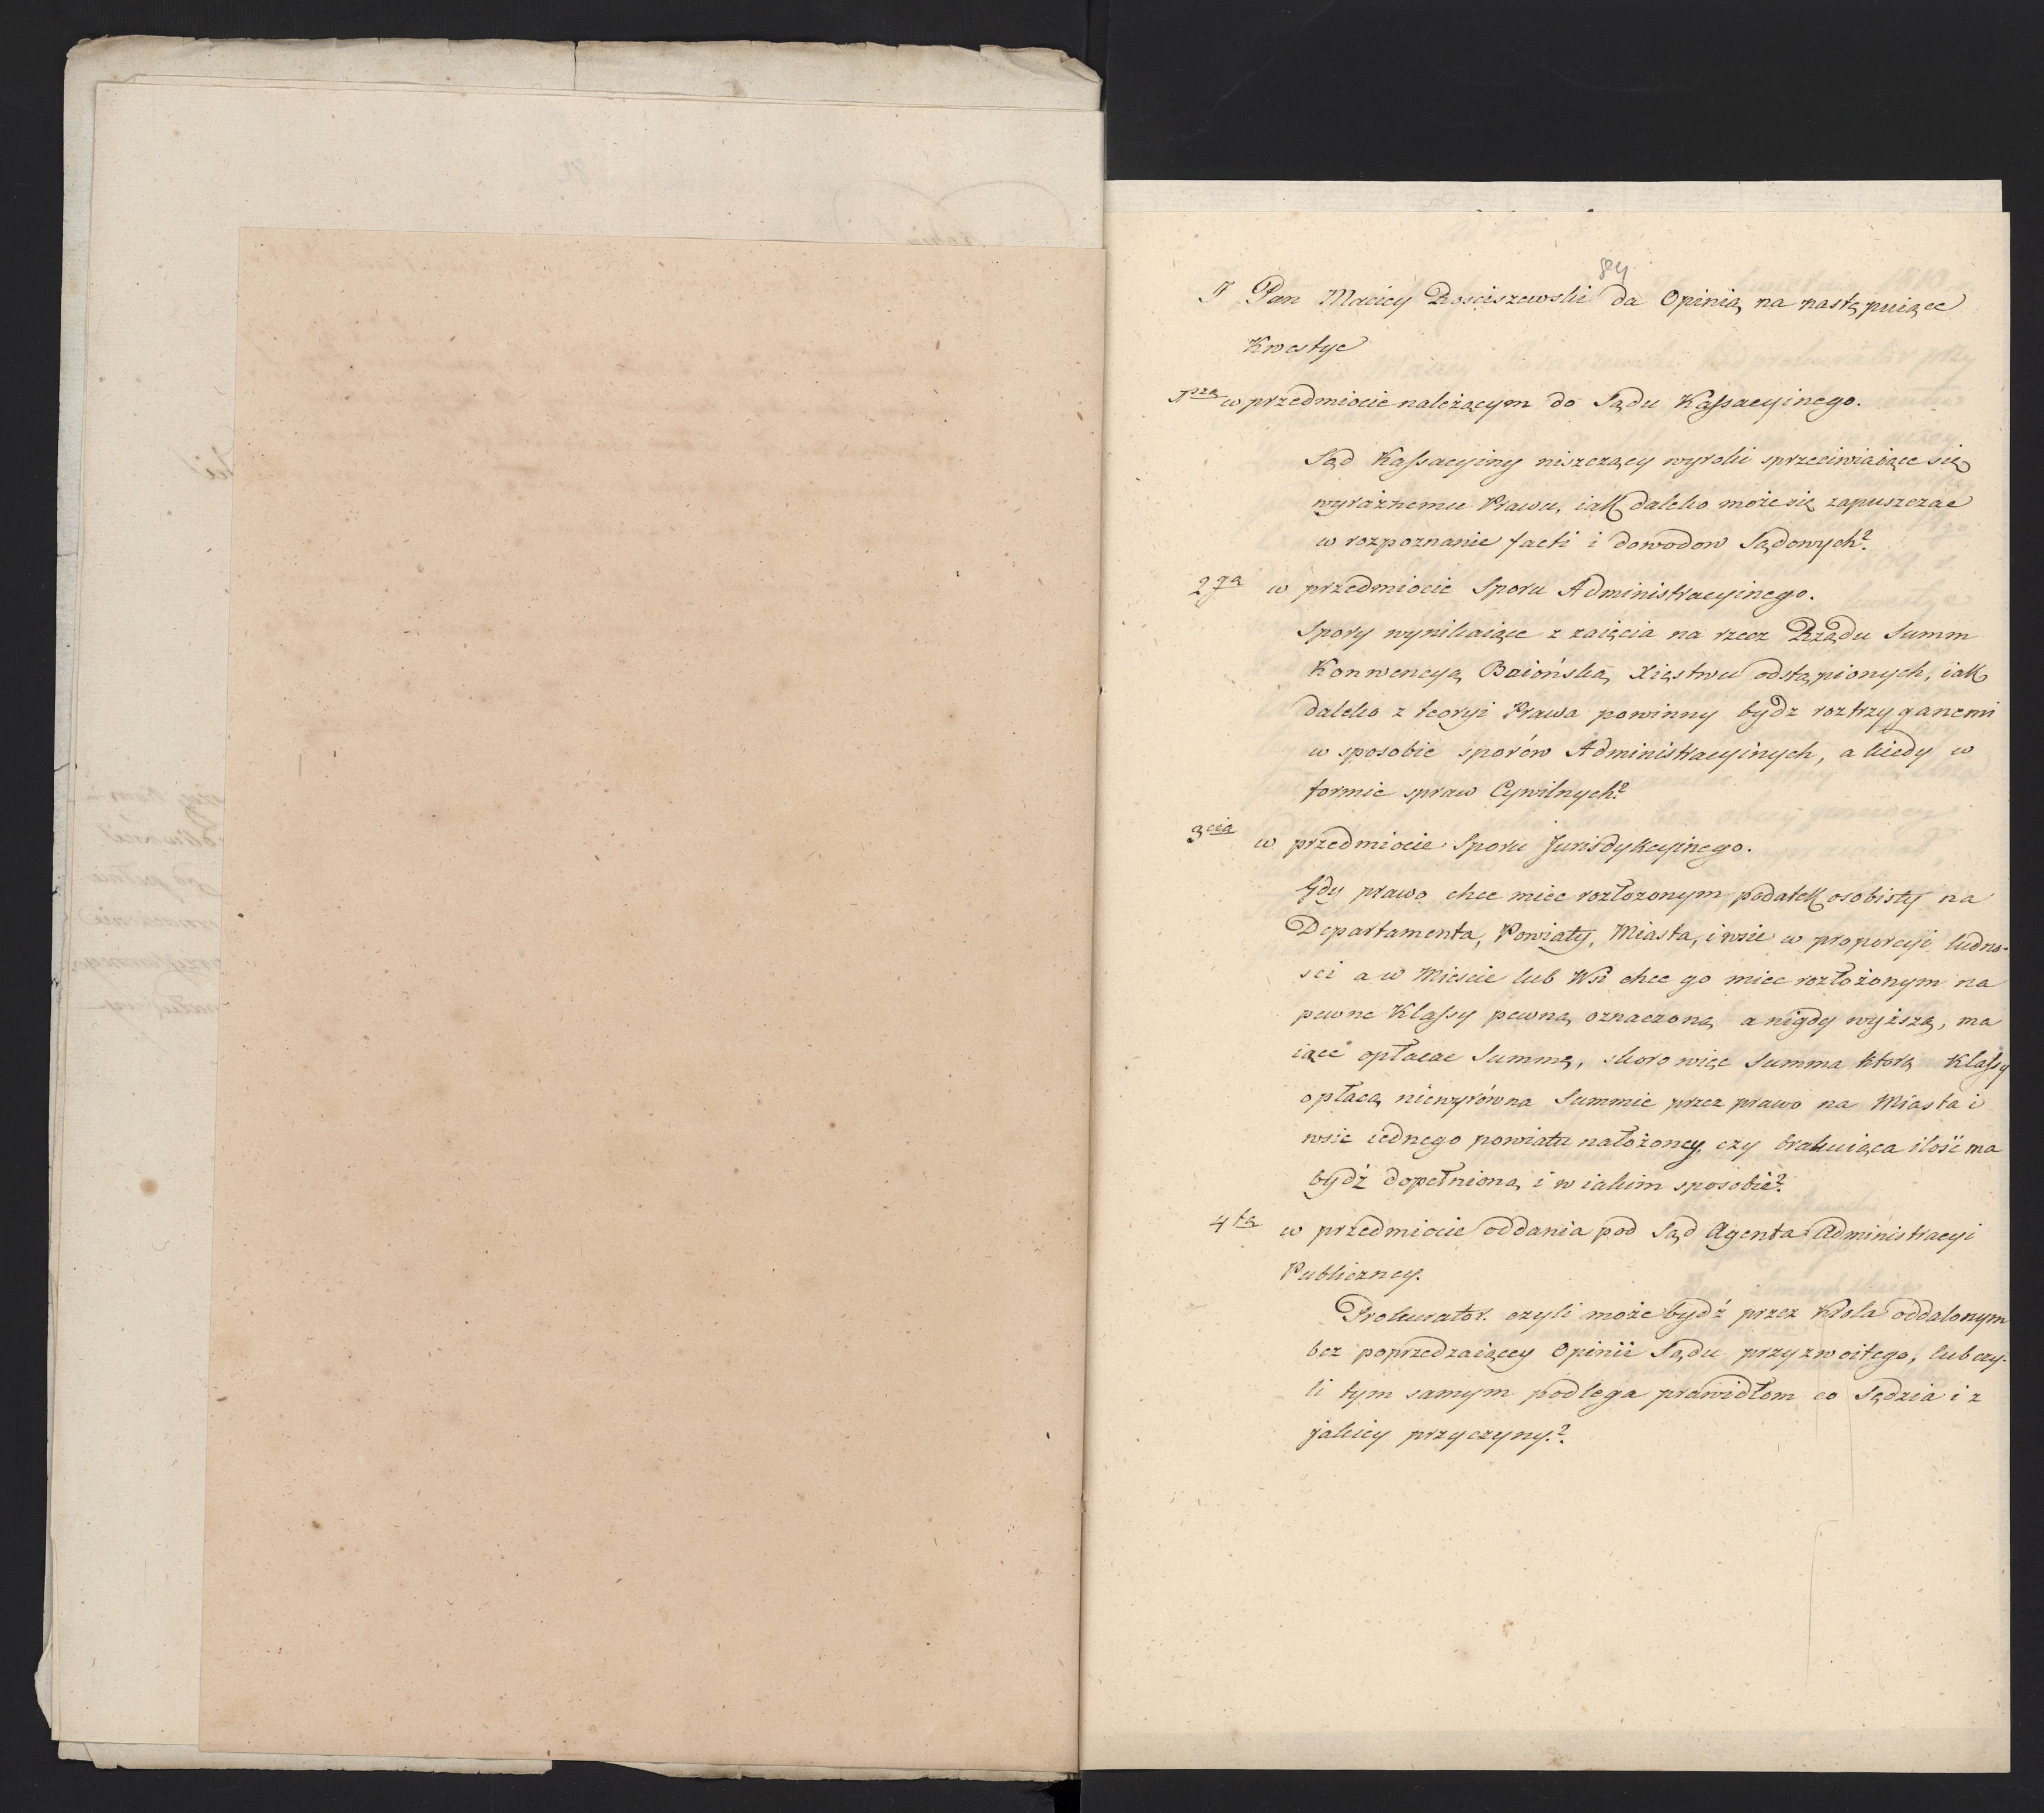 84
J Pan Maciey Rościszewski da Opinią na następuiące
Kwestye
1sza w przedmiocie należącym do Sądu Kassacyinego.
Sąd Kassacyiny niszczący wyroki sprzeciwiaiące się
wyraźnemu Prawu, iak daleko może się zapuszczać
w rozpoznanie facti i dowodow Sądowych?
2ga w przedmiocie Sporu Administracyinego.
Spory wynikaiące z zaięcia na rzecz Rządu Summ
Konwencyą Baiońską Xięstwu odstąpionych, iak
daleko z teoryi Prawa powinny bydz roztrzyganemi
w sposobie sporów Administracyinych, a kiedy w
formie spraw Cywilnych?
3cia w przedmiocie Sporu Jurisdykcyinego.
Gdy prawo chce miec rozłozonym podatek osobisty na
Departamenta, Powiaty, Miasta, i wsie w proporcyi ludno-
sci a w Miescie lub Wsi chce go miec rozłożonym na
pewne Klassy pewną oznaczoną a nigdy wyższą, ma
iące opłacac Summę, skoro więc Summa ktorą Klassy
opłacą niewyrówna Summie przez prawo na Miasta i
wsie iednego powiatu nałożoney, czy brakuiąca ilość ma
bydź dopełnioną i w iakim sposobie?
4ta w przedmiocie oddania pod Sąd Agenta Administracyi
Publiczney.
Prokurator czyli może bydź przez Krola oddalonym
bez poprzedzaiącey Opinii Sądu przyzwoitego, lub czy-
li tym samym podlega prawidłom co Sędzia i z
jakiey przyczyny?